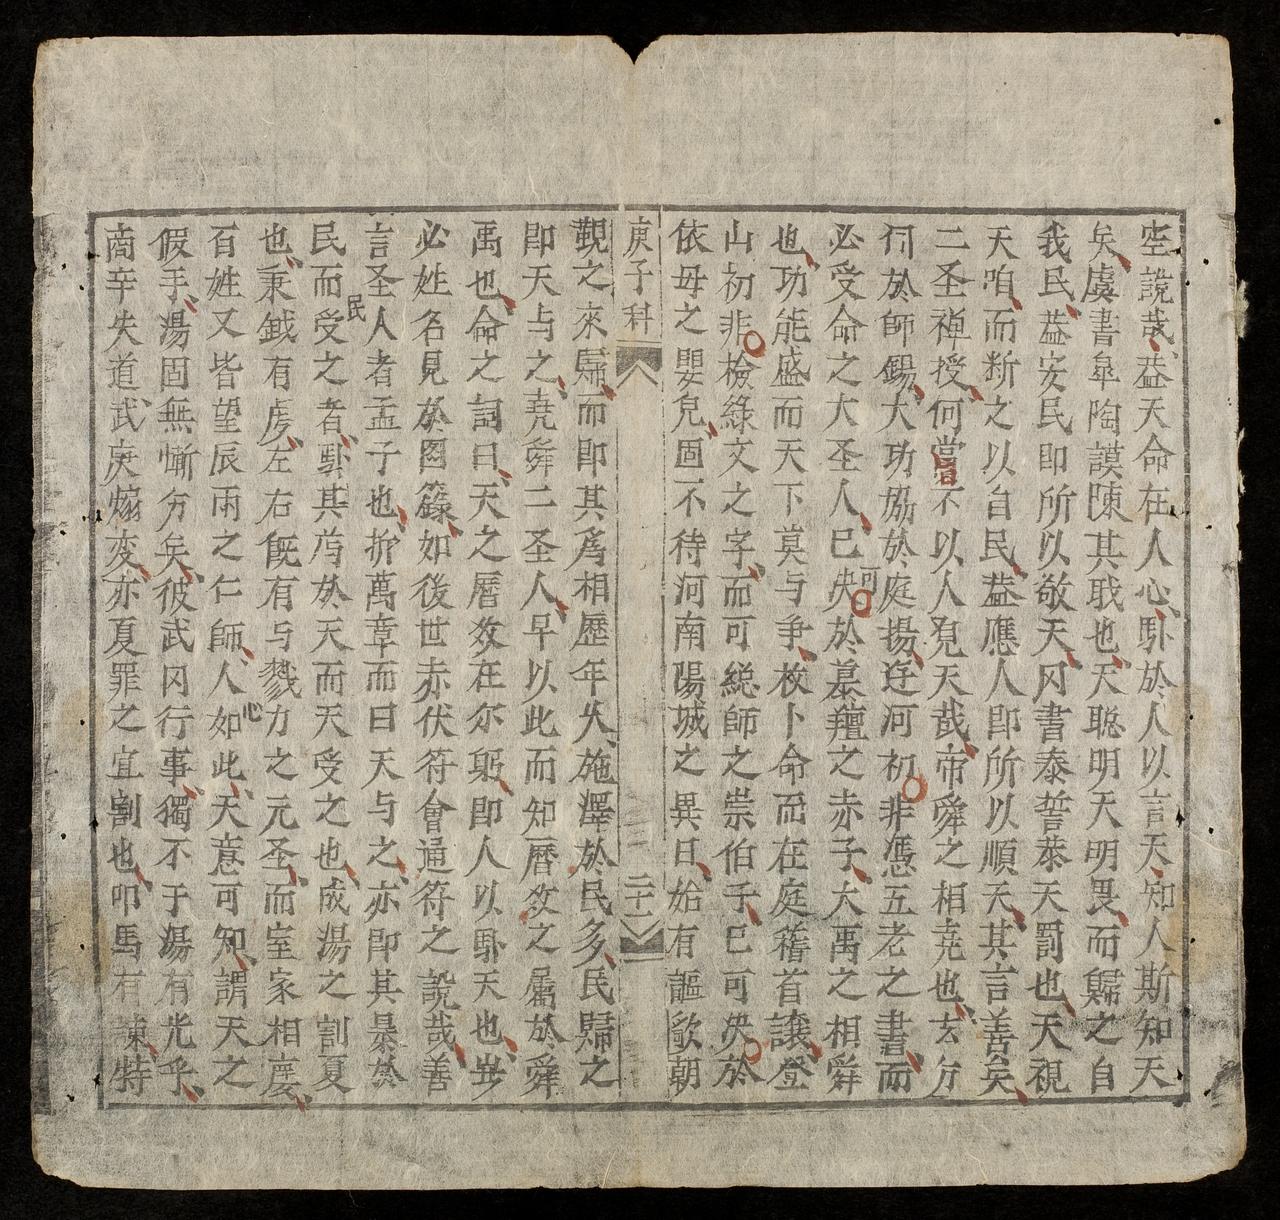 空說哉蓋天命在人心馭於人以言天知人斯知天
矣虞書皐陶謨陳其戢也天聦明天明畏而歸之自
我民蓋安民即所以敬天冈書泰誓恭天罰也天視
天咱而断之以自民蓋應人即所以順天其言善矣
二圣禅授何嘗不以人覔天哉帝舜之相尭也玄分
何於師錫大功勛於庭揚迋河初非憑五老之書而
必受命之大圣人已决於墓羶之赤子大禹之相舜
也功能盛而天下莫与争枚卜命而在庭稽首讓登
山初非檢綠文之字而可総師之崇伯千已可决於
依毋之嬰皃固不待河南陽城之異日始有謳歌朝
庚子科 二十一
覲之來歸而即其為相歷年久施澤於民多民歸之
即天与之尭舜二圣人早以此而知曆数之屬於舜
禹也命之詞曰天之曆数在尔躬即人以馭天也岁
必姓名見於图籙如後世赤伏符會通符之說哉善
言圣人者孟子也折萬章而曰天与之亦即其暴於
民而民受之者馭其荐於天而天受之也成湯之割夏
也秉鉞有虔左右旣有与戮力之元圣而室家相慶
百姓又皆望辰雨之仁師人心如此天意可知謂天之
假手湯固無慚分矣彼武冈行事獨不于湯有光乎
商辛失道武庚煽变亦夏罪之宜割也叩馬有諫特